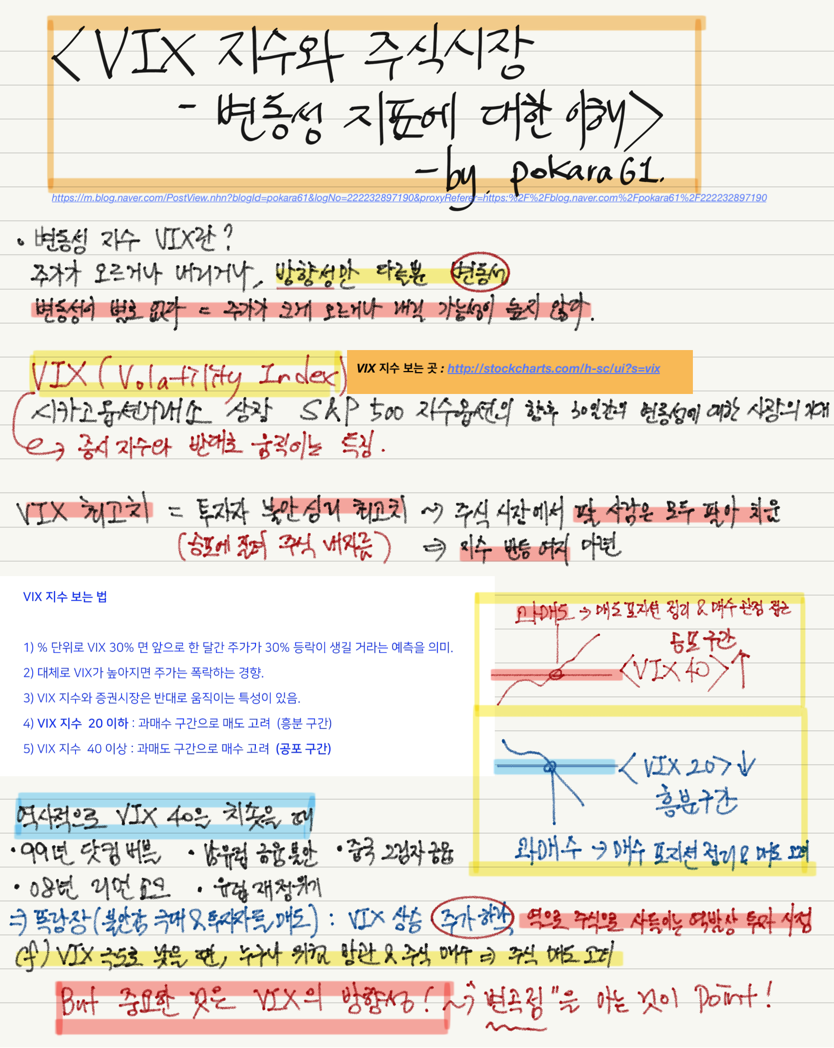 <VIX 지수와 주식시장
- 변동성 지표에 대한 이해>
- by. pokara61.
https://m.blog.naver.com/PostView.nhn?blogId=pokara61&logNo=222232897190&proxyReferer=https:%2F%2Fblog.naver.com%2Fpokara61%2F222232897190
• 변동성 지수 VIX란?
주가가 오르거나 내리거나, 방향성만 다를뿐 변동성
변동성이 별로 없다 = 주가가 크게 오르거나 내릴 가능성이 높지 않다.
VIX (Volatility Index)
VIX 지수 보는 곳 : http://stockcharts.com/h-sc/ui?s=vix
시카고옵션거래소 상장 S&P 500 지수옵션의 향후 30일간의 변동성에 대한 시장의 기대
→ 증시 지수와 반대로 움직이는 특징.
VIX 최고치 = 투자자 불안 심리 최고치 ~> 주식 시장에서 팔 사람은 모두 팔아 치운
(공포에 질려 주식 내지름) ⇒ 지수 반등 여지 마련
VIX 지수 보는 법
1) % 단위로 VIX 30% 면 앞으로 한 달간 주가가 30% 등락이 생길 거라는 예측을 의미.
2) 대체로 VIX가 높아지면 주가는 폭락하는 경향.
3) VIX 지수와 증권시장은 반대로 움직이는 특성이 있음.
4) VIX 지수 20 이하 : 과매수 구간으로 매도 고려 (흥분 구간)
5) VIX 지수 40 이상 : 과매도 구간으로 매수 고려 (공포 구간)
과매도 → 매도 포지션 정리 & 매수 관점 접근
공포 구간
<VIX 40> ↑
<VIX 20> ↓
흥분구간
과매수 → 매수 포지션 정리 & 매도 고려
역사적으로 VIX 40을 치솟을 때
• 99년 닷컴 버블 • 남유럽 금융불안 • 중국 그림자 금융
• 08년 리먼 쇼크 • 유럽 재정위기
⇒ 폭락장 (불안감 극대 & 투자자들 매도) : VIX 상승 주가하락 역으로 주식으로 사들이는 역발상 투자 시점
cf) VIX 극도로 낮을 땐, 누구나 위험 망관 & 주식 매수 ⇒ 주식 매도 고려
But 중요한 것은 VIX의 방향성! ~> "변곡점"을 아는 것이 Point!